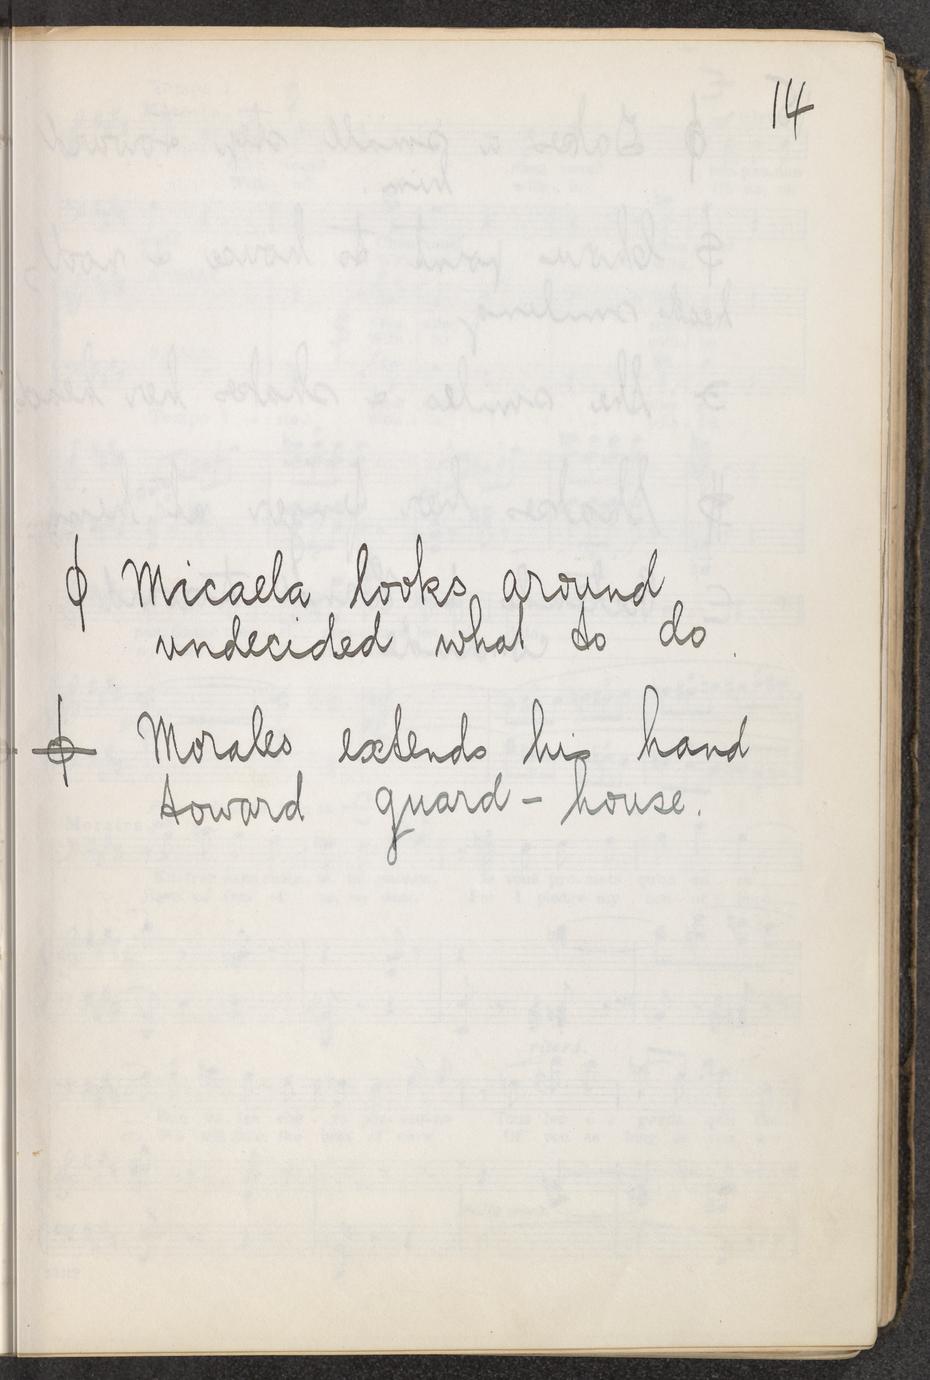 14
ϕ Micaela looks around
undecided what to do.
ϕ Morales extends his hand
toward guard-house.